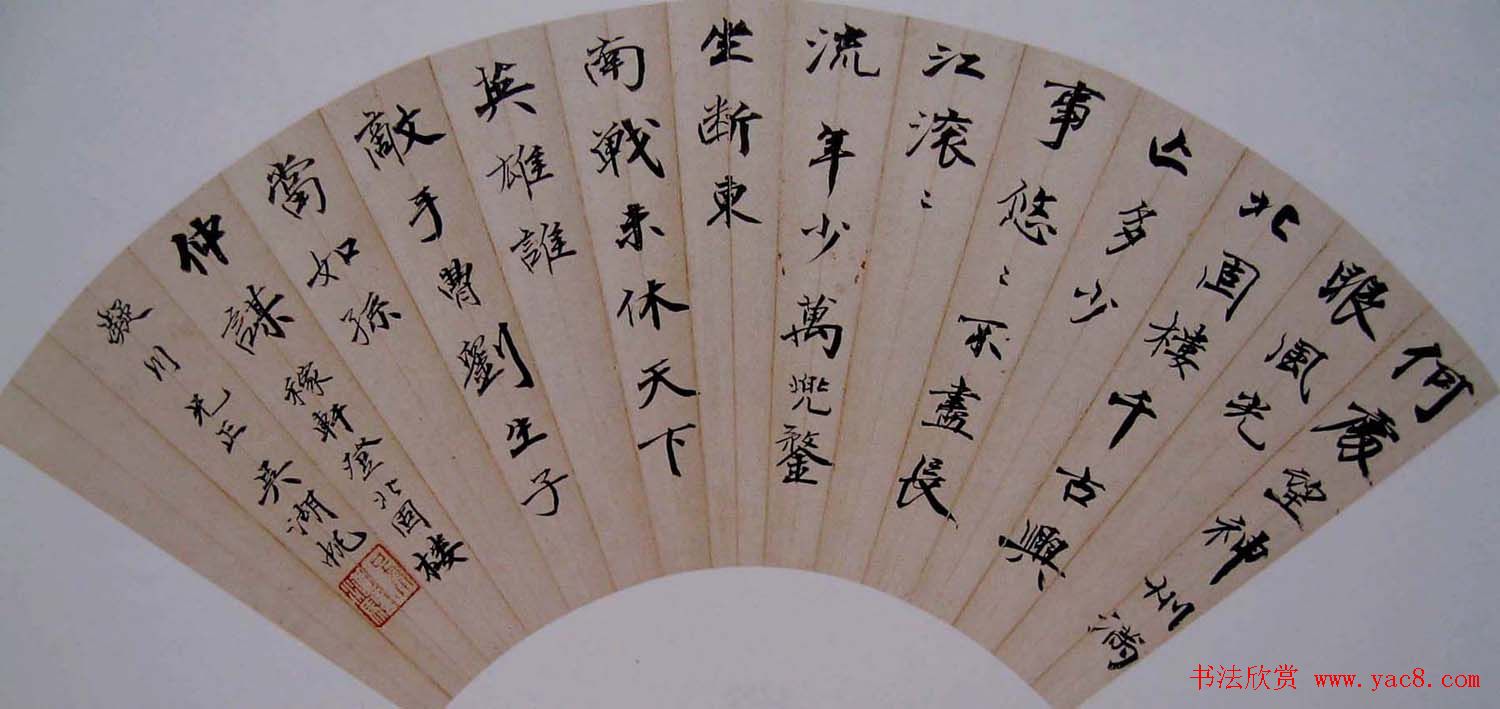 何處望神州滿
眼風光
北固樓千古興
亡多少
事悠〻不盡長
江滾〻
流年少萬兜鍪
坐断東
南戰未休天下
英雄誰
敵手曹劉生子
當如孫
仲謀 稼軒登北固楼
川兄正 吴湖帆
书法欣赏 www.yac8.com